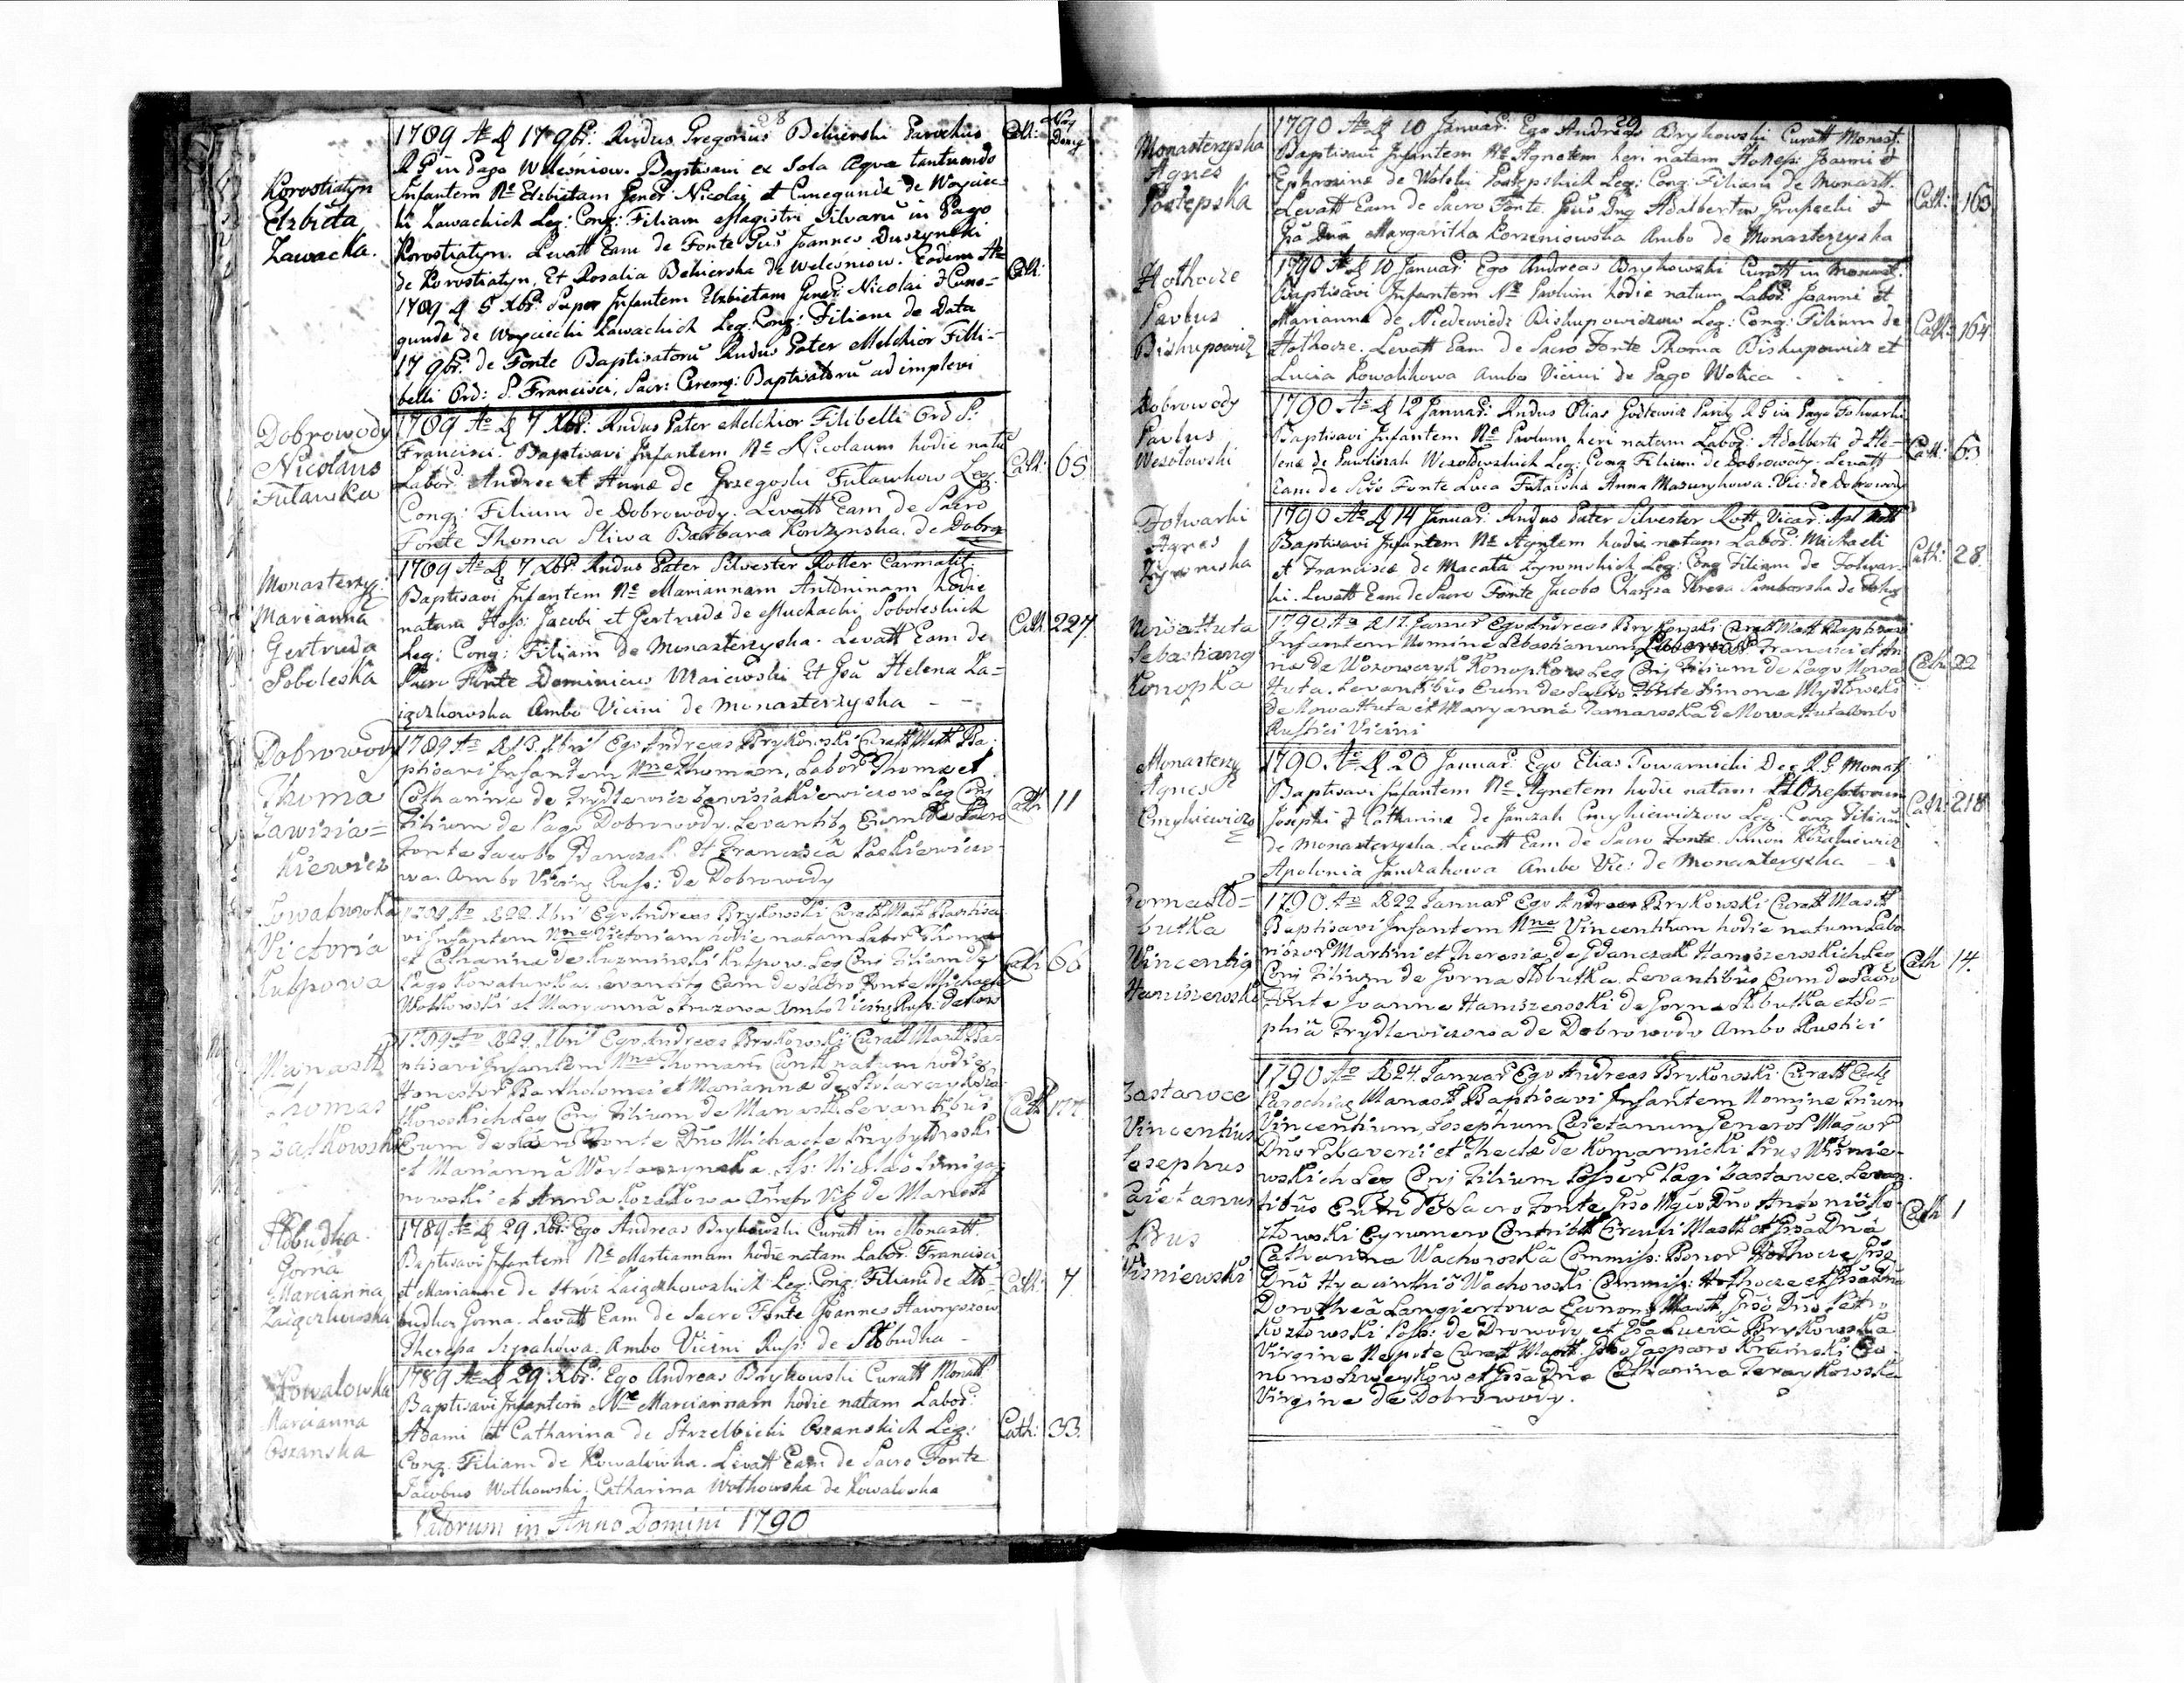 28
Korostiatyn
Elzbieta
Zawacka.
1789 Ao D 17 9br: Rndus Gregorius Belinski Parochus
R G in Pago Weleśniow. Baptisavi ex Sola Aqva tantum do
Infantem Ne Elzbietam Gener: Nicolai et Cunegunda de Woyciec-
ki Zawackich Leg: Conj: Filiam Magistri Silvarū in Pago
Korostiatyn. Levatt Eam de Fonte Gūs Joannes Duszynski
de Korostiatyn, Et Rosalia Belierska de Weleśniow. Eodem Ao
1789 D 5 Xbr: Super Infantem Elzbietam Gener: Nicolai & Cune-
gunda de Woyciecki Zawackich Leg: Conj: Filiam de Data
17 9br: de Fonte Baptisatorū Rndus Pater Melchior Filli-
belli Ord: S. Francisci, Sacr: Cerem: Baptisatorū ad implevi
Cath:
Cath:
Dobrowody
Nicolaus
Futawka
1789 Ao D 7 Xbr: Rndus Pater Melchior Filibelli Ord S:
Francisci. Baptisavi Infantem Ne Nicolaum hodie natū
Labor: Andrea et Anna de Grzegoski Futawkow Leg:
Conj: Filium de Dobrowody. Levatt Eam de Sacro
Fonte Thoma Sliwa Barbara Korzynska. de Dobrow
Cath: 65
Monasterzy:
Marianna
Gertruda
Soboleska
1789 Ao D 7 Xbr: Rndus Pater Silvester Rotter Carmalit
Baptisavi Infantem Ne Mariannam Antoninam hodie
natam Hoss: Jacobi et Gertruda de Muchachi Soboleskich
Leg: Conj: Filiam de Monasterzyska. Levatt Eam de
Sacro Fonte Dominicus Maiewski Et Gsā Helena La-
iączkowska Ambo Vicini de Monasterzyska - -
Cath 227
Dobrowody
Thoma
Zawisia=
kiewicz
1789 Ao D 13. Xbris Ego Andreas Brykowski Curatt Mast Ba:
ptisavi Infantem Nne Thomam, Labor Thoma et
Catharina de Frydlewicz Zawisiakiewiczow Leg Conj
Filium de Pago Dobrowody. Levantibq Eum de Sacro
Fonte Jacobo Banczak. Et Francisca Paskiewiczo-
wa. Ambo Vicinq Russ: de Dobrowody
Cath 11
Kowalowka
Victoria
1789 Ao D 22 Xbris Ego Andreas Brykowski Curatt Mast Baptisa
vi Infantem Nne Victoriam hodie natam Labor Thoma
et Catharina de Kuzminski Leg Conj Filiam de
Pago Kowalowka. Levantibq Eam de Sacro Fonte Michaele
Wolkowski et Maryanna Mrozowa Ambo Vicinq Rusp. de Kow
Cath 66
Manastt
Thomas
Zalkowski
1789 Ao D 29. Xbris Ego Andreas Brykowski Curatt Mast Ba-
ptisavi Infantem Nne Thomam Cant natum hodie
Honestor Bartholomei et Marianna de Stolarczyk Za-
lkowskich Leg Conj Filium de Manast. Levantibus
Eum de Sacro Fonte Dno Michaele Przybylowski
et Marianna Woytaszynska. Ass: Nicolao
nowski et Anna Kozakowa Ambo Vis de Manast
Cath 177
Słobudka
Gorna
Marcianna
Łaiączkowska
1789 Ao D 29 Xbr: Ego Andreas Brykowski Curatt in Monastt.
Baptisavi Infantem Ne Martiannam hodie natam Labor: Francisci
et Marianna de Stroz Łaiączkowskich Leg: Conj: Filiam de Sło-
budka Gorna. Levatt Eam de Sacro Fonte Joannes Hawryszow
Theresa Szpakowa. Ambo Vicini Rusp: de Słobudka -
Cath: 7
Kowalowka
Marcianna
Oszanska
1789 Ao D 29 Xbr: Ego Andreas Brykowski Curatt Monastt
Baptisavi Infantem Ne Marciannam hodie natam Labor:
Adami et Catharina de Strzelbicki Oszanskich Leg:
Conj: Filiam de Kowalowka. Levatt Eam de Sacro Fonte
Jacobus Wotkowski. Catharina Wotkowska de Kowalowka
Cath: 33
Natorum in Anno Domini 1790
29
Monasterzyska
Agnes
Postępska
1790 Ao D 10 Januar: Ego Andreas Brykowski Curatt Monast.
Baptisavi Infantem Ne Agnetem heri natam Honess: Joanni &
Ephrosina de Wolski Postępskich Leg: Conj: Filiam de Monastt.
Levatt Eam de Sacro Fonte. Gsūs Dnq Adalbertus Grusiecki &
Gsā Dnā Margaritha Korzeniowska Ambo de Monasterzyska
Cath: 163
Hołhocze
Paulus
Biskupowicz
1790 Ao D 10 Januar: Ego Andreas Brykowski Curatt in Monast.
Baptisavi Infantem Ne Paulum hodie natum Labor: Joanni et
Marianna de Niedzwiedz Biskupowiczow Leg: Conj: Filium de
Hołhocze. Levatt Eam de Sacro Fonte Thoma Biskupowicz et
Lucia Kowalikowa Ambo Vicini de Pago Wolica
Cath: 164
Dobrowody
Paulus
Wesołowski
1790 Ao D 12 Januar: Rndus Elias Parch R G in Pago Folwarki
Baptisavi Infantem Ne Paulum heri natam Labor: Adalberti & He-
lena de Pawliszak Wesołowskich Leg: Conj Filium de Dobrowody. Levatt
Eam de Scro Fonte Luca Futawska Anna Mazurykowa. Vic: de Dobrowody
Cath: 63
Folwarki
Agnes
Zyromska
1790 Ao D 14 Januar: Rndus Pater Silvester Rott Vicar: Apl Mott
Baptisavi Infantem Ne Agntem hodie natam Labor: Michaeli
et Francisca de Macata Zyromskich Leg: Conj Filiam de Folwar-
ki. Levatt Eam de Sacro Fonte Jacobo Theresa Samborska de Folwq
Cath: 28
Nowa Huta
Sebastianq
Konopka
1790 Ao D 17. Januar Ego Andreas Brykowski Curatt Mastt Baptisavi
Infantem Nomine Sebastianum Laboriosor Francisci et An
na de Wozowczyk Konopkow Leg Conj Filium de Pago Nowa
Huta. Levantibus Eum de Sacro Fonte Simone Mydłowski
de Nowa Huta et Maryanna Tamarowska de Nowa Huta Ambo
Rustici Vicini
Cath 22
Monasterz
Agnes
Cmykiewicz
1790. Ao D 20 Januar. Ego Elias Towarnicki Dec R.G Monast
Baptisavi Infantem Ne Agnetem hodie natam Honestorum
Josephi & Catharina de Janczak Cmykiewiczow Leg: Conj Filiam
de Monasterzyska. Levatt Eam de Sacro Fonte. Simon Kożakiewicz
Apolonia Janczakowa Ambo Vic: de Monasterzyska
Cath: 218
butka
Vincentiq
Haniszewski
1790. Ao D 22 Januar Ego Andreas Brykowski Curatt Mastt
Baptisavi Infantem Nne Vincentium hodie natum Labo
riosor Martini et Theresia de Gdanczak Haniszewskich Leg
Conj Filium de Gorna Słobutka. Levantibus Eum de Sacro
Fonte Joanne Haniszewski de Gorna Słobutka et So=
phia Frydlewiczowa de Dobrowody Ambo Rustici
Cath 14.
Zastawce
Vincentius
Josephus
Caietanus
Prus
Wisniewski
1790 Ao D 24. Januar Ego Andreas Brykowski Curatt Eccle
Parochiae Manast. Baptisavi Infantem Nomine Trium
Vincentium, Josephum Caietanum Generor Magcor
Dnor Xaverii et Thecla de Komarnicki Prus Wisnie-
wskich Leg Conj Filium Posser Pagi Zastawce. Levan-
tibus Eum de Sacro Fonte Gsso Mgco Dno Antonio Ko-
złowski Circuli Mastt et Gssa Dna
Catharina Wachowska Commiss: Bonor Hołhocze Gsso
Dno Hyacintho Wachowski Commiss: Hołhocze et Gssa Dna
Dorothea Langiertowa Econom Mastt, Gsso Dno Petro
Kozłowski Poss: de Drowody et Gssa Lucia Brykowska
Virgine Nepote Curatt Mastt. Gsso Gasparo Kraiński Eco
nomo et Gssa Dna Catharina Teraykowska
Virgine de Dobrowody.
Cath 1